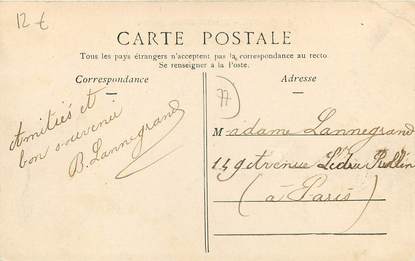 12 €
CARTE POSTALE
Tous les pays étrangers n'acceptent pas la correspondance au recto.
Se renseigner à la Poste.
Correspondance
Adresse
77
Amitiés et
bon souvenir
B. Lannegrand
Madame Lannegrand
149 Avenue Ledru Rollin
(à Paris)